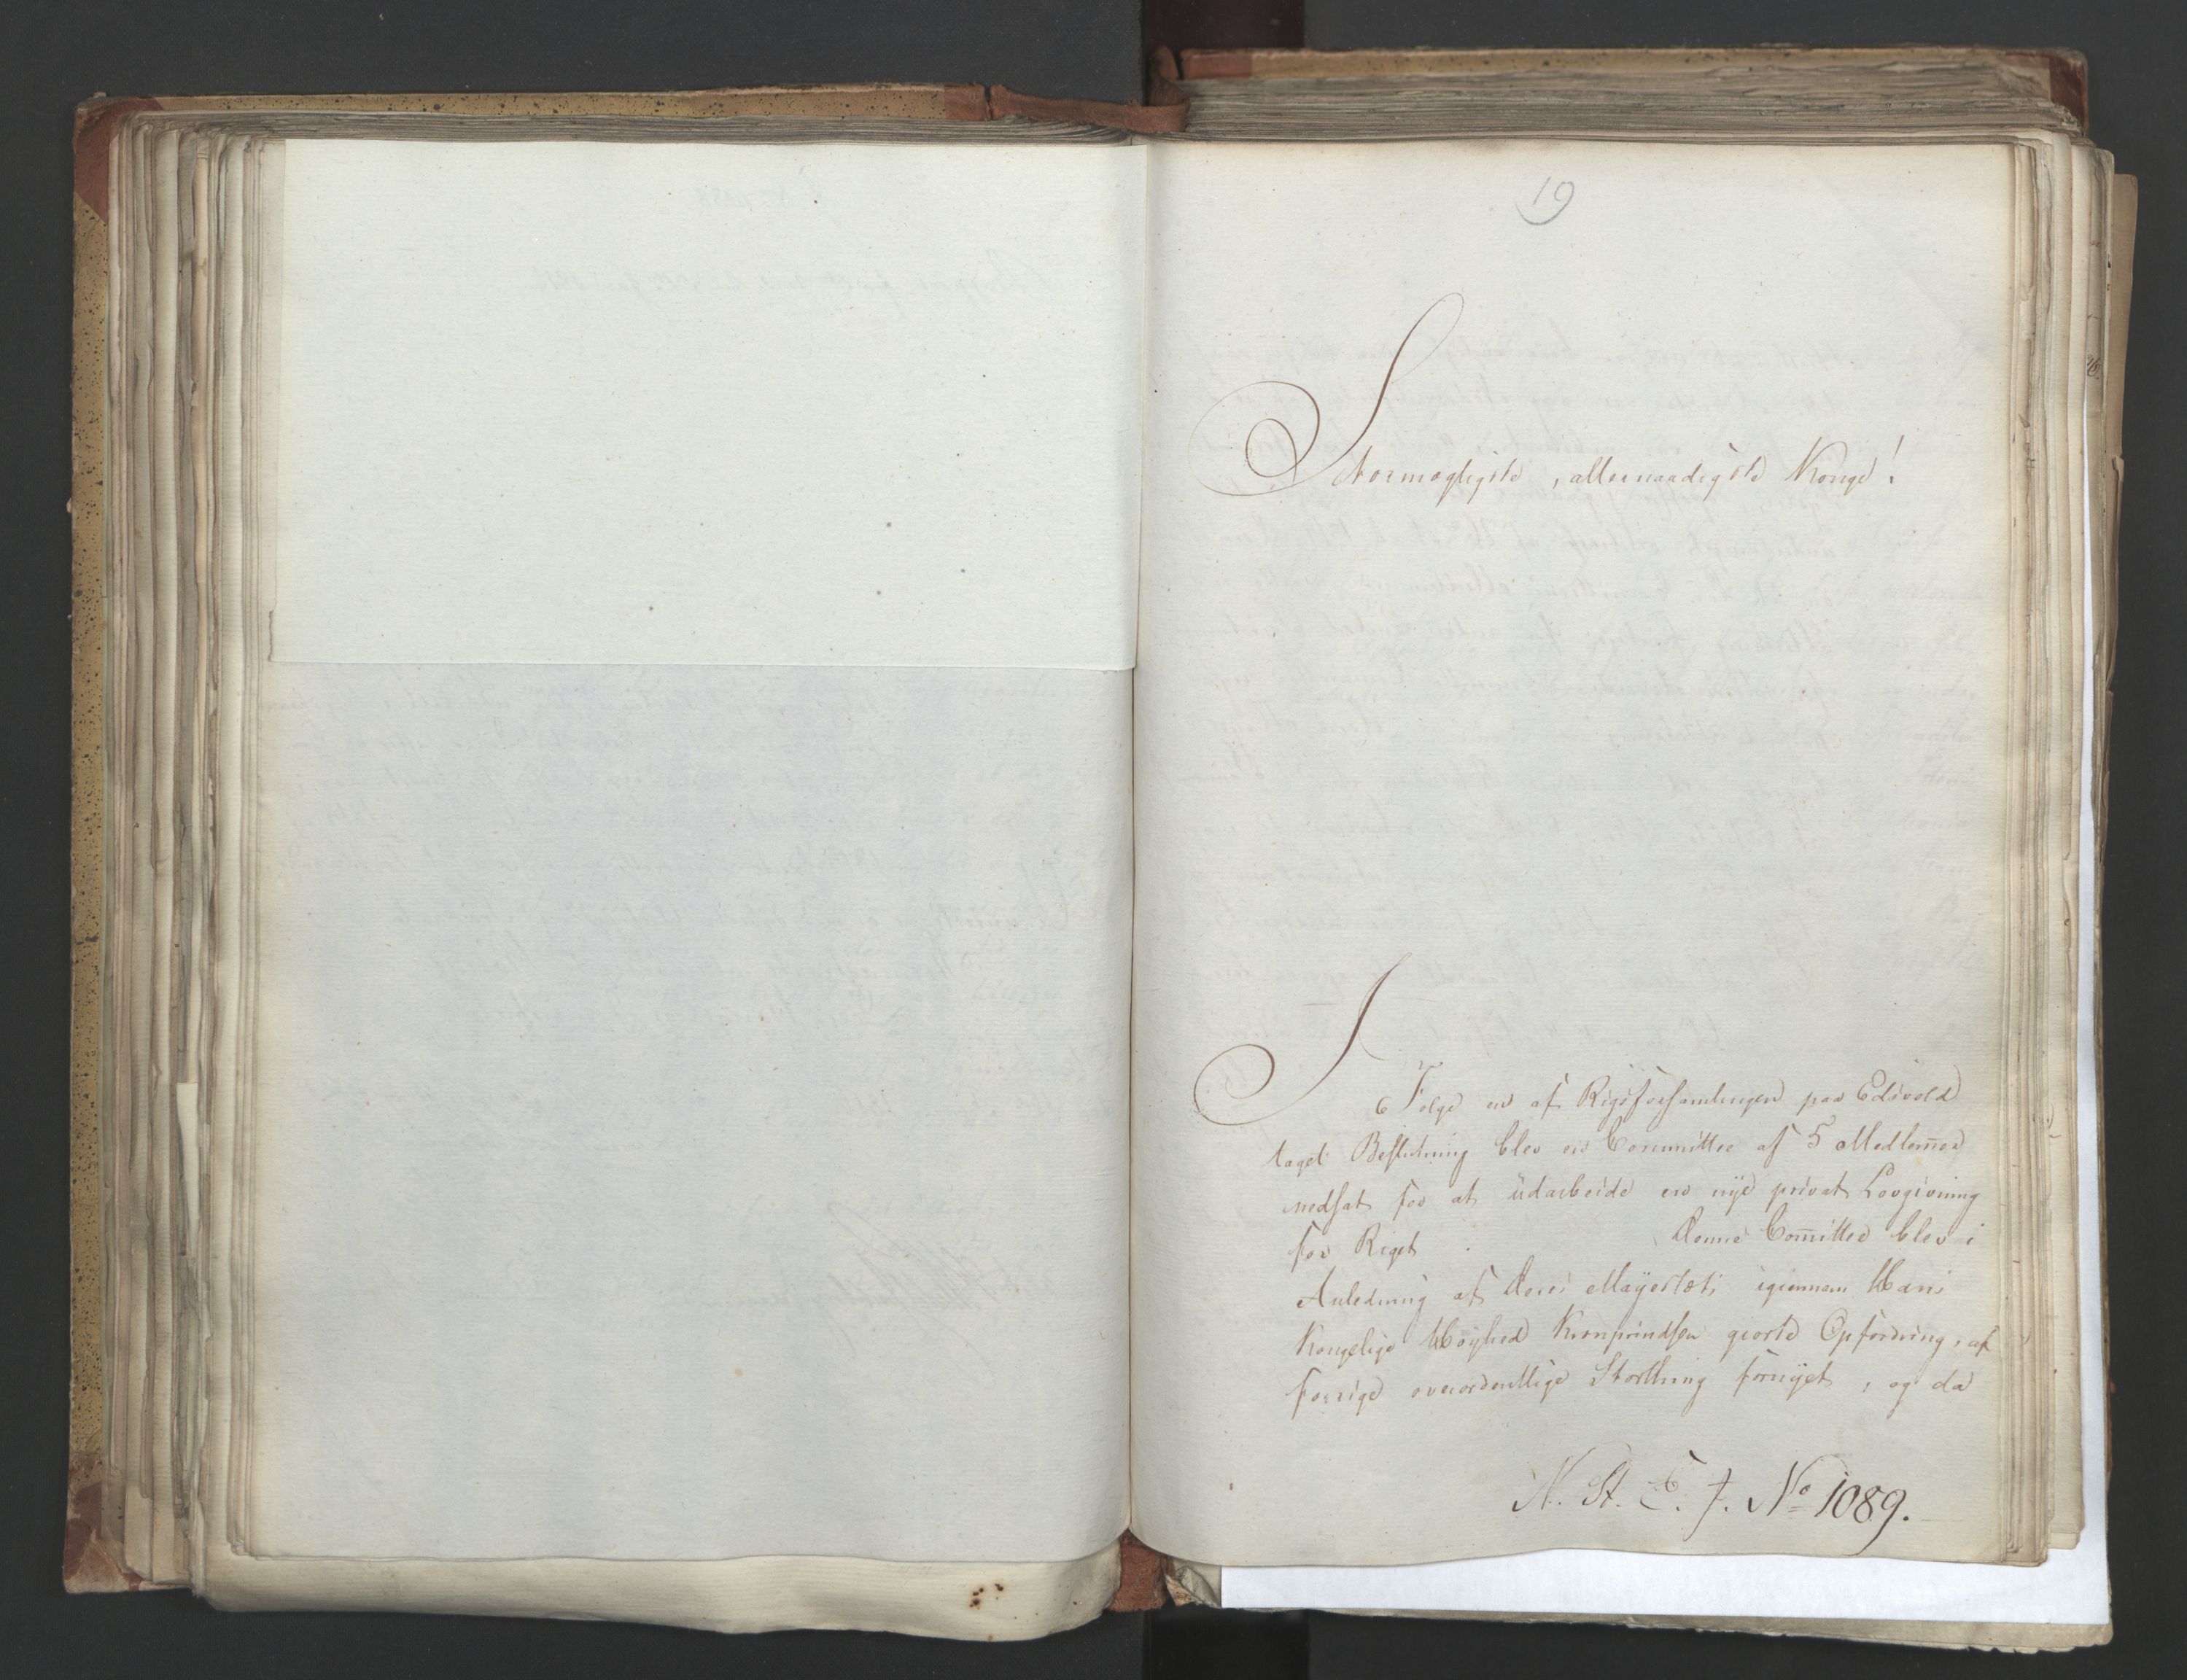 19
Stormægtigste, allernaadigste Konge!
I Følge en af Rigsforsamlingen paa Edsvold
taget Beslutning blev en Committee af 5 Medlem̄er
nedsat for at udarbeide en nye privat Lovgivning
for Riget. Denne Com̄ittee blev i
Anledning af Deres Mayestæts igiennem Hans
Kongelige Høyhed Kronprindsen giorte Opfordring, af
forrige overordentlige Storthing fornyet, og da
N. St. E. J. No 1089.